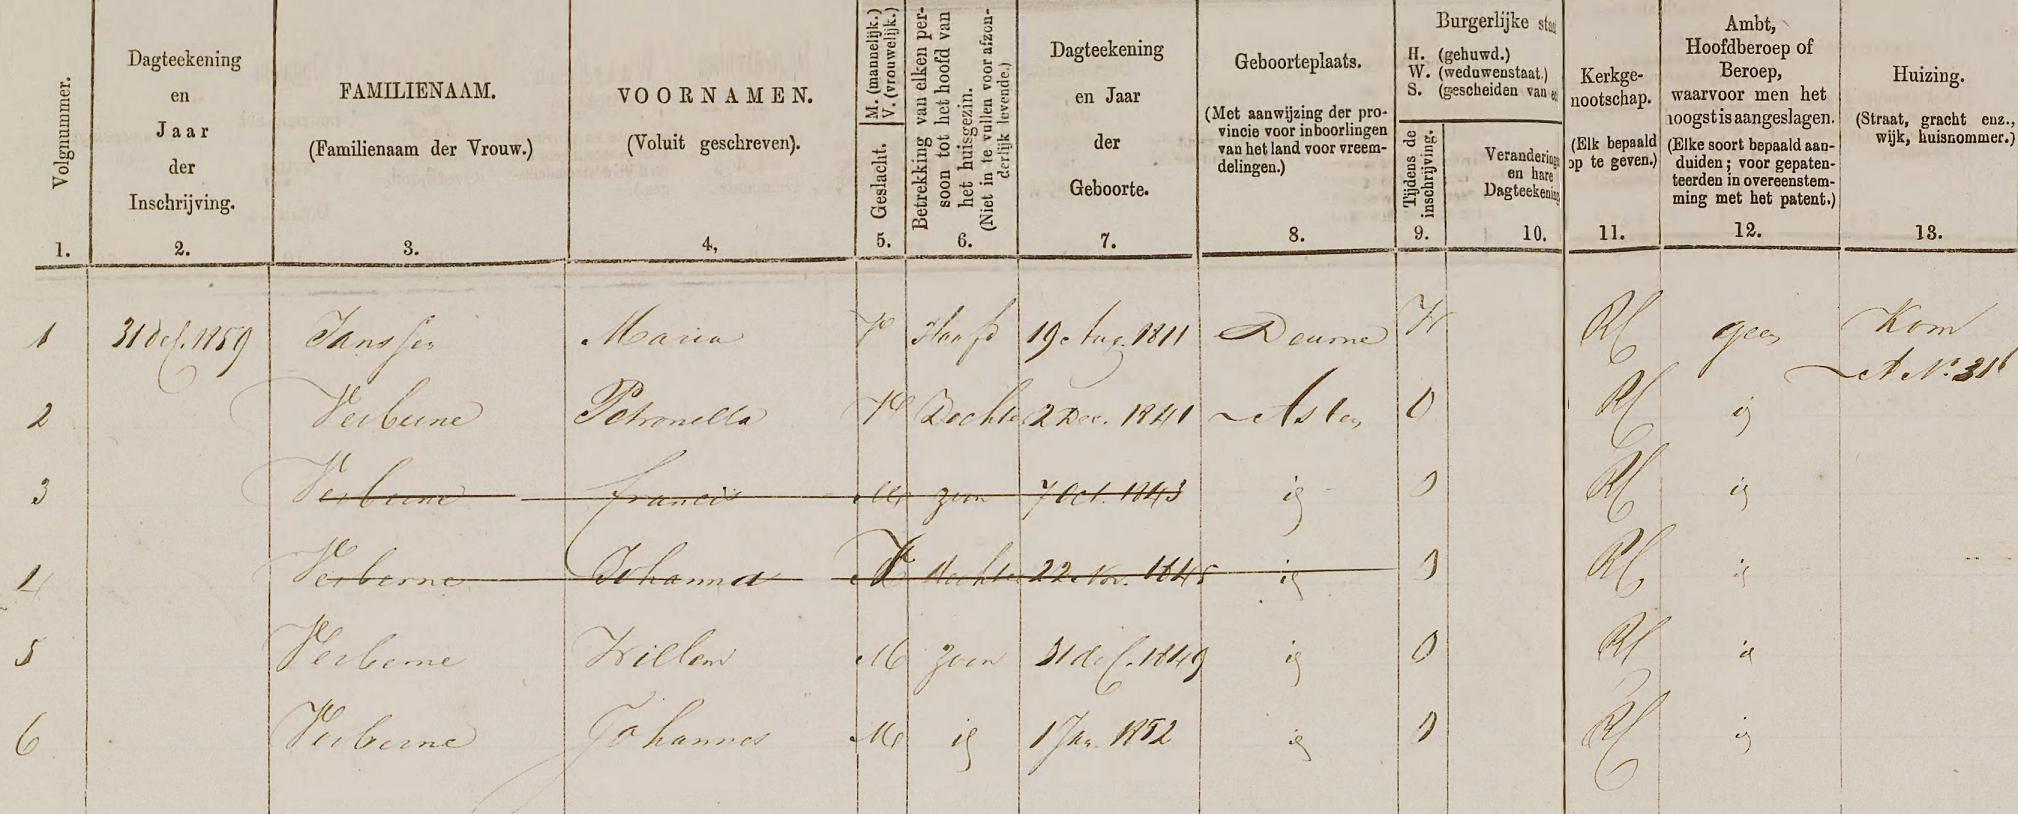 Volgnummer. 1.
Dagteekening en Jaar der Inschrijving. 2.
FAMILIENAAM. (Familienaam der Vrouw.) 3.
VOORNAMEN. (Voluit geschreven). 4,
M. (mannelijk.) V. (vrouwelijk.) Geslacht. 5.
Betrekking van elken persoon tot het hoofd van het huisgezin. (Niet in te vullen voor afzonderlijk levende.) 6.
Dagteekening en Jaar der Geboorte. 7.
Geboorteplaats. (Met aanwijzing der provincie voor inboorlingen van het land voor vreemdelingen.) 8.
Burgerlijke
H. (gehuwd.)
W. (weduwenstaat.)
S. (gescheiden van
Tijdens de inschrijving. 9.
Verandering en hare Dagteekening 10.
Kerkgenootschap. (Elk bepaald op te geven.) 11.
Ambt, Hoofdberoep of Beroep, waarvoor men het hoogst is aangeslagen. (Elke soort bepaald aanduiden; voor gepatenteerden in overeenstemming met het patent.) 12.
Huizing. (Straat, gracht enz., wijk, huisnommer.) 13.
1 31 dec. 1859 Janssen Maria V Hoofd 19 Aug. 1811 Deurne W RC geen Kom
A No. 316
2 Verberne Petronella V Dochter 2 Dec. 1841 Asten O RC id
3 Verberne Francis M zoon 7 Oct. 1843 id O RC id
4 Verberne Johanna V dochter 22 Nov. 1845 id O RC id
5 Verberne Willem M zoon 31 dec. 1849 id O RC id
6 Verberne Johannes M id 1 Jan. 1852 id O RC id